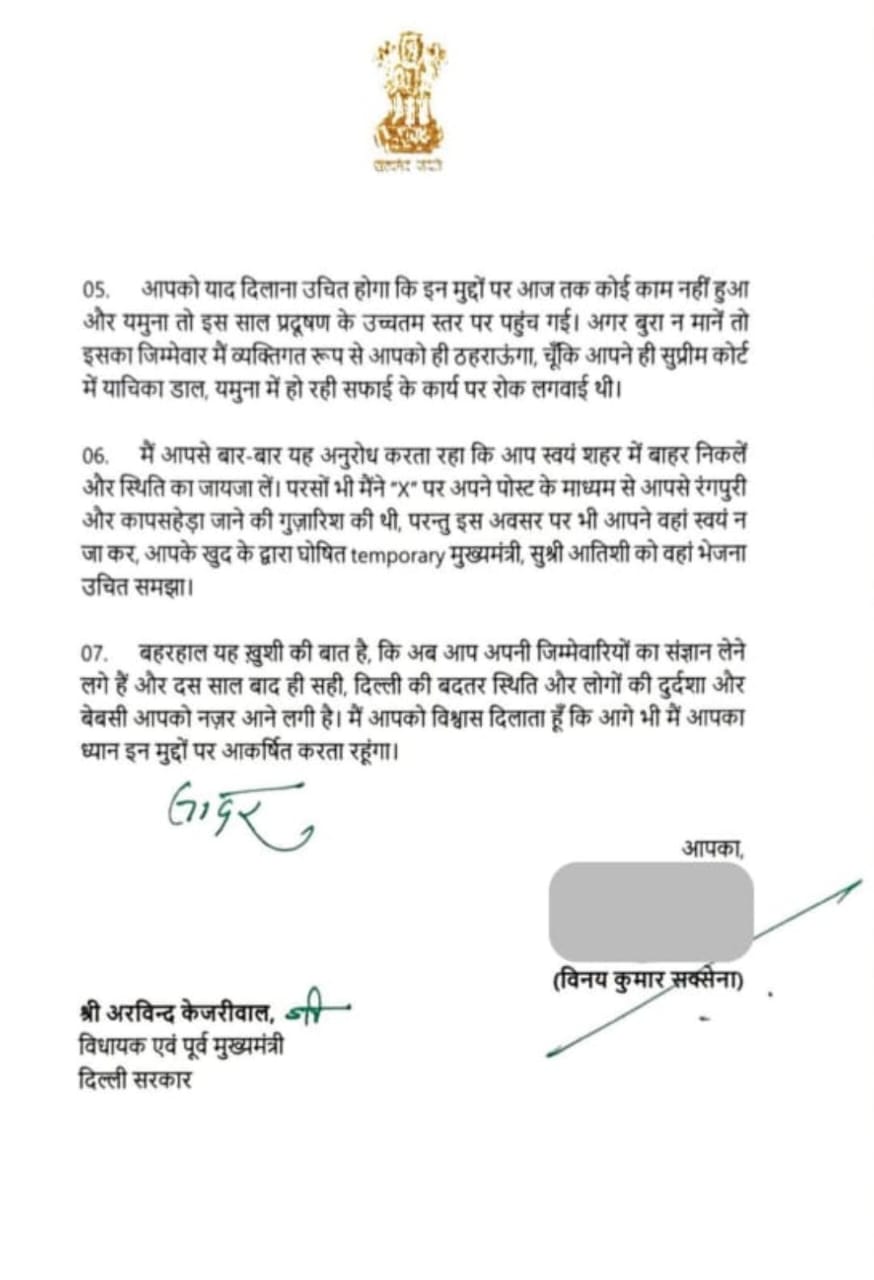 सत्यमेव जयते
05. आपको याद दिलाना उचित होगा कि इन मुद्दों पर आज तक कोई काम नहीं हुआ
और यमुना तो इस साल प्रदूषण के उच्चतम स्तर पर पहुंच गई। अगर बुरा न मानें तो
इसका जिम्मेवार मैं व्यक्तिगत रूप से आपको ही ठहराऊंगा, चूँकि आपने ही सुप्रीम कोर्ट
में याचिका डाल, यमुना में हो रही सफाई के कार्य पर रोक लगवाई थी।
06. मैं आपसे बार-बार यह अनुरोध करता रहा कि आप स्वयं शहर में बाहर निकलें
और स्थिति का जायजा लें। परसों भी मैंने "X" पर अपने पोस्ट के माध्यम से आपसे रंगपुरी
और कापसहेड़ा जाने की गुज़ारिश की थी, परन्तु इस अवसर पर भी आपने वहां स्वयं न
जा कर, आपके खुद के द्वारा घोषित temporary मुख्यमंत्री, सुश्री आतिशी को वहां भेजना
उचित समझा।
07. बहरहाल यह ख़ुशी की बात है, कि अब आप अपनी जिम्मेवारियों का संज्ञान लेने
लगे हैं और दस साल बाद ही सही, दिल्ली की बदतर स्थिति और लोगों की दुर्दशा और
बेबसी आपको नज़र आने लगी है। मैं आपको विश्वास दिलाता हूँ कि आगे भी मैं आपका
ध्यान इन मुद्दों पर आकर्षित करता रहूंगा।
सादर
आपका,
(विनय कुमार सक्सेना)
श्री अरविन्द केजरीवाल, जी
विधायक एवं पूर्व मुख्यमंत्री
दिल्ली सरकार